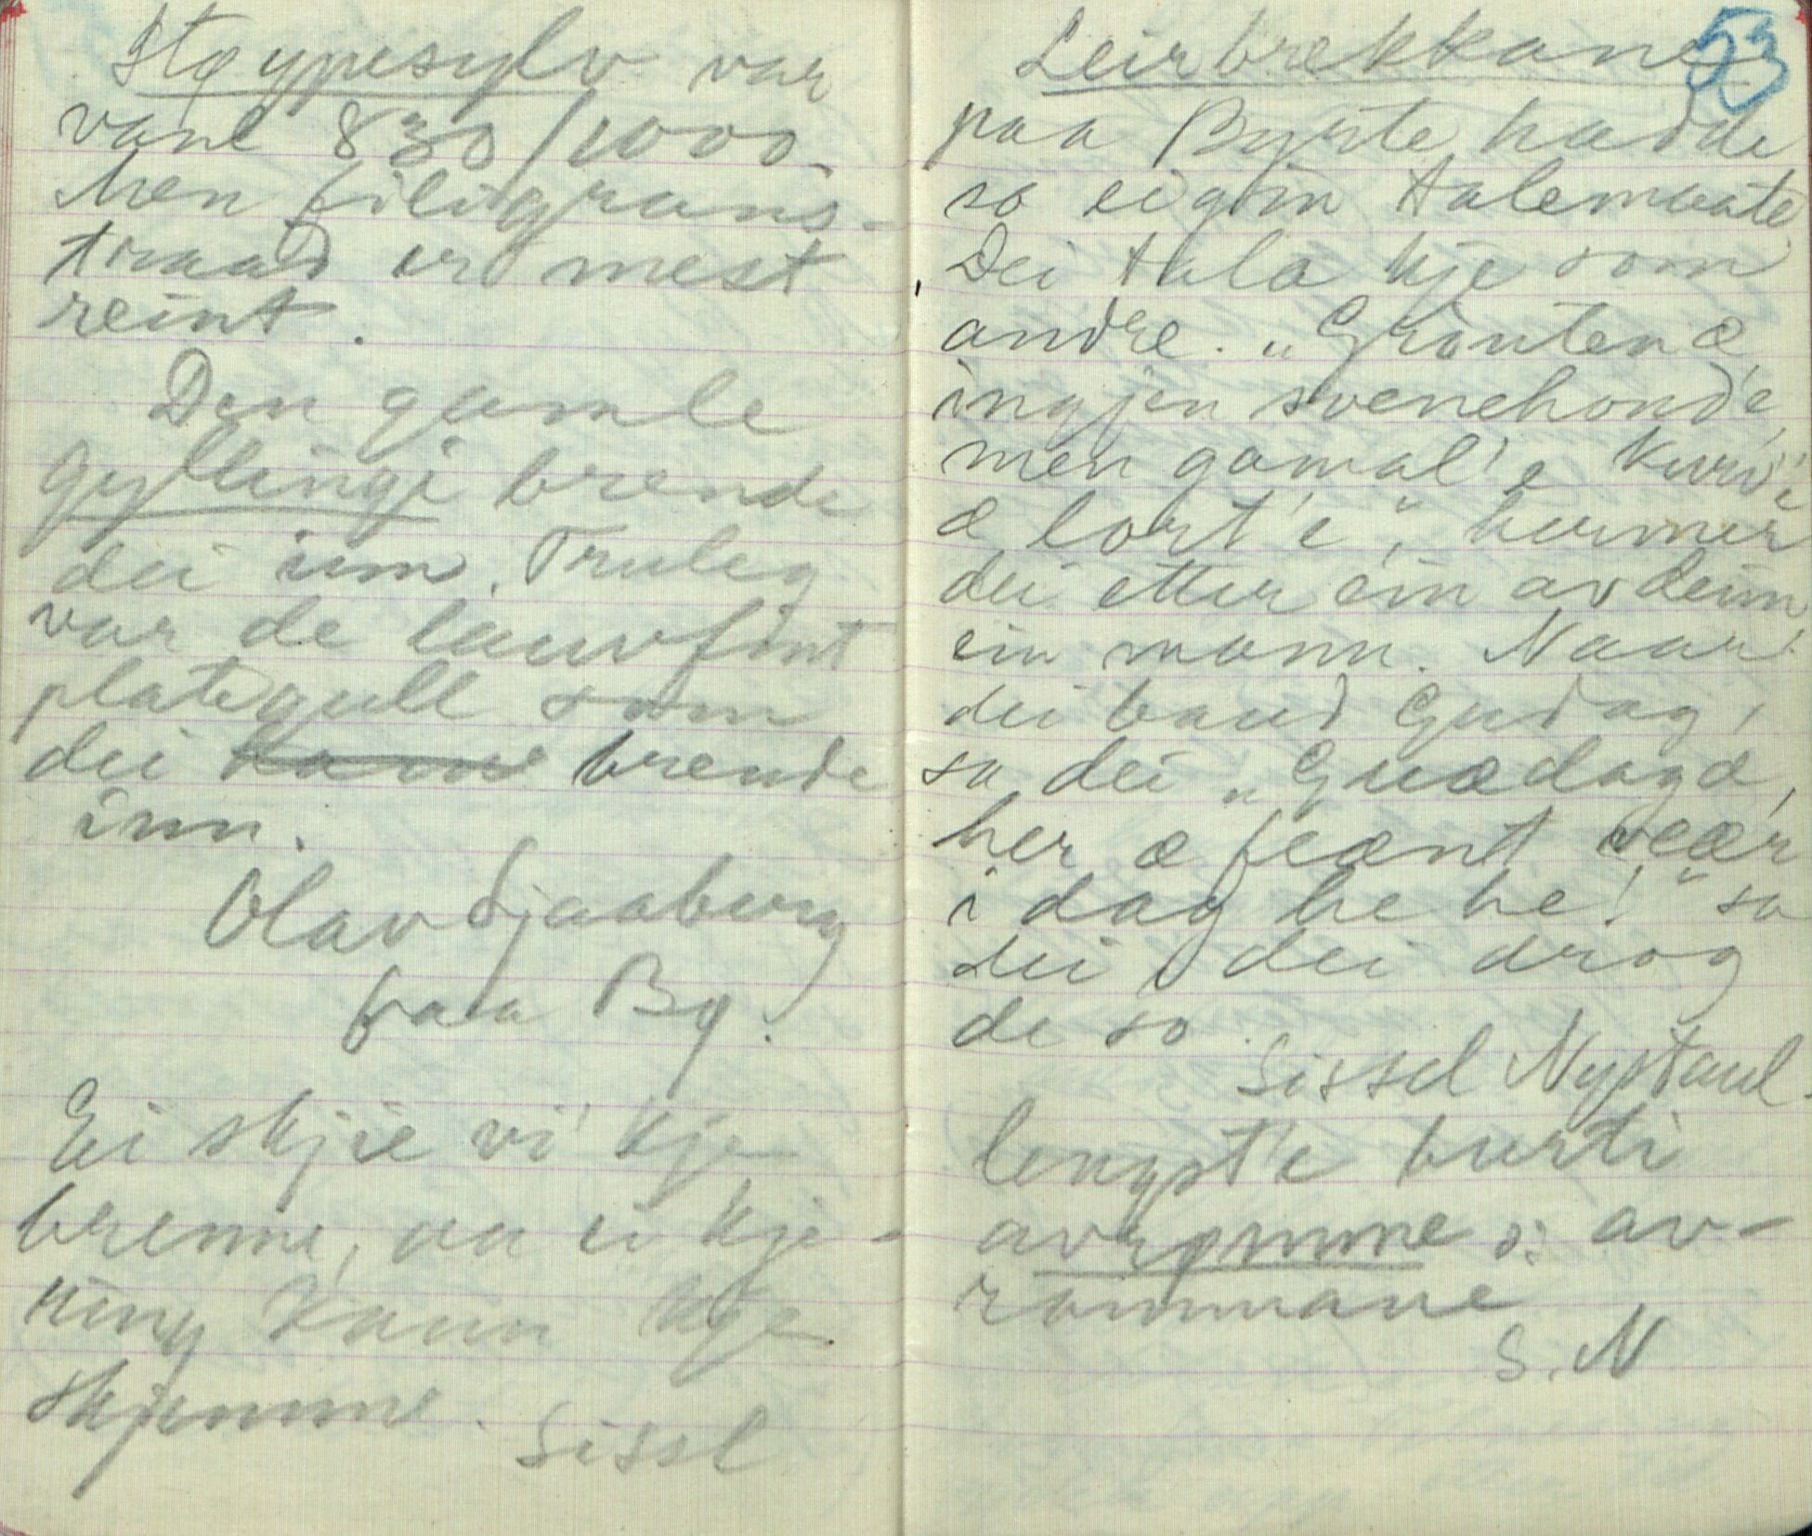 Støypesylv var
vanl 830/1000.
Men filigrans-
traad er mest
reint.
Den gamle
gyllingi brende
dei inn. Truleg
var de lauvfint
plategull som
dei brende
inn.
Olav Sjaaberg
fraa By.
Ei skjie vi' kje
brenne, aa ei kje-
ring kann kje
skjemme.
Sissl
53
Leirbrekkane
paa Byrte hadde
so eigin talemaate
Dei tala kje som
andre. „Grauten æ
ingjen svenehond'e,
men gamal'e kurv'e
æ lort'e", hermer
dei etter ein av deim
ein mann. Naar
dei baud Gudag,
sa dei „Guædagæ,
her æ feænt veær
i dag he he!" sa
dei dei drog
de so.
Sissel Nystaul.
lengst'e burti
avrømme ɔ: av-
rommane
S. N